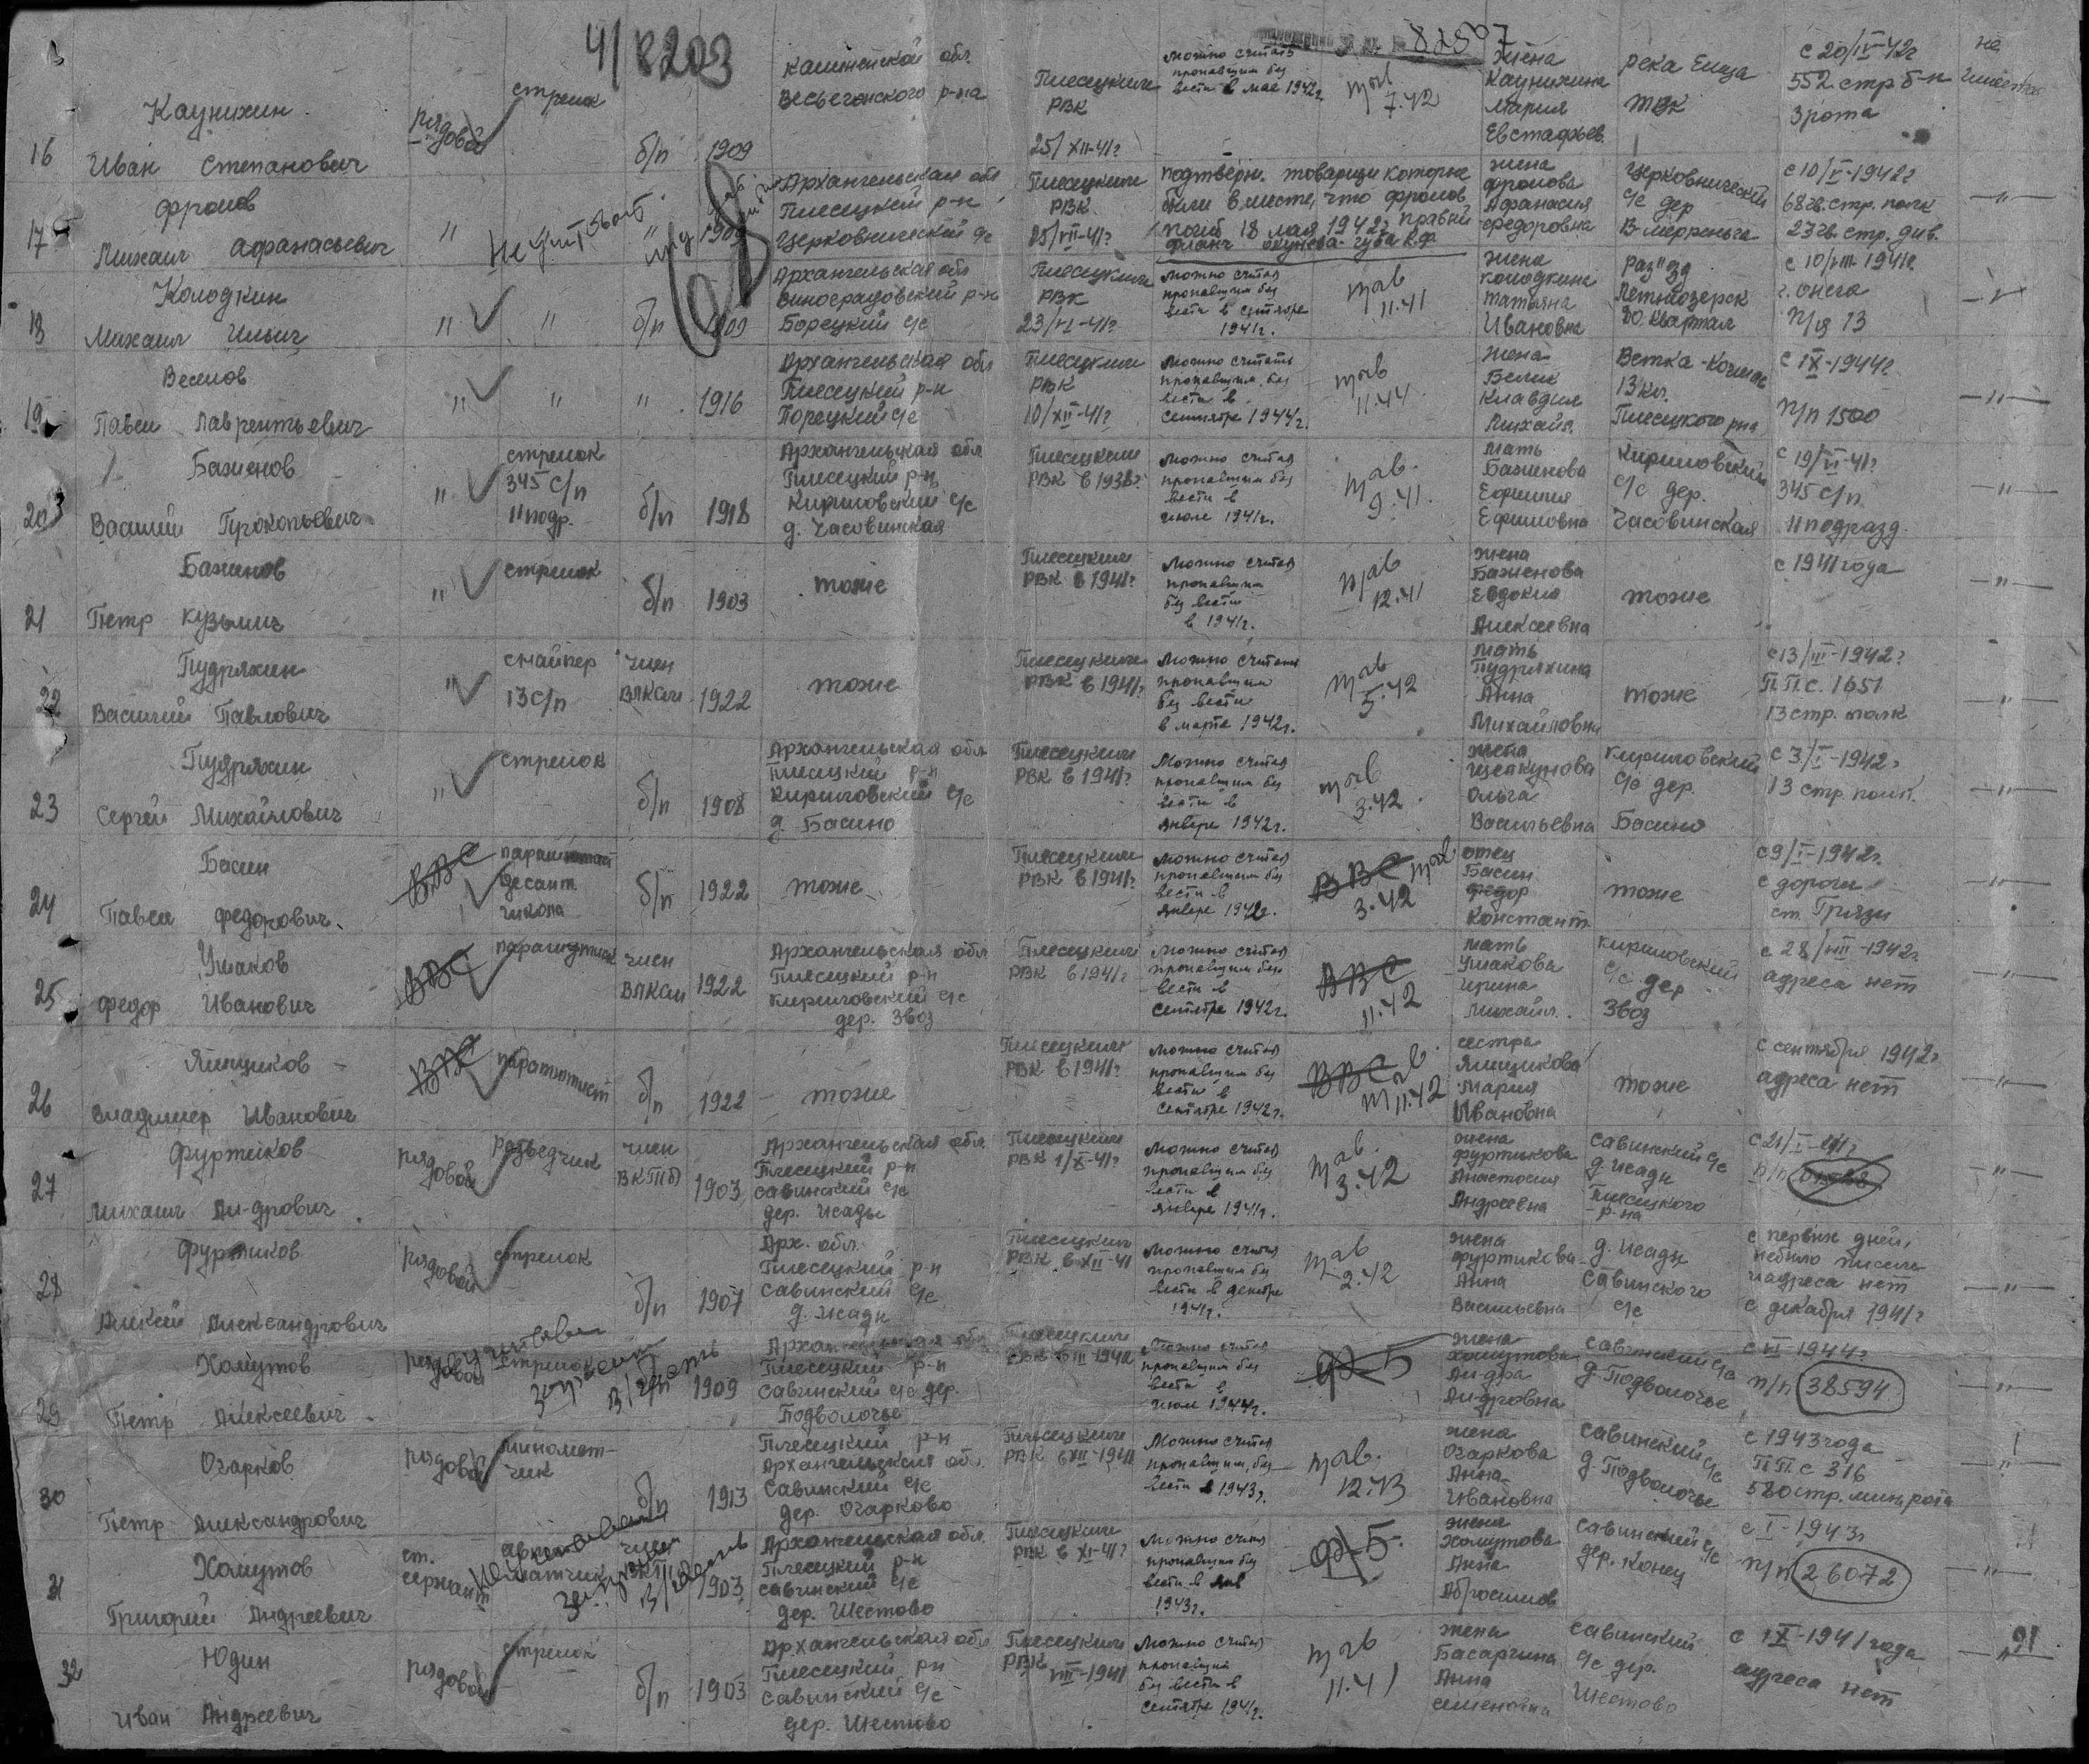 4/8203
82507
16
Каунихин
Иван Степанович
рядовой
стрелок
б/п
1909
Калининской обл.
Весьегонского р-на
Плесецким
РВК
25/XII-41г
можно считать
пропавшим без
вести в мае 1942г
7.42
жена
Каунихина
Мария
Евстафьев.
река Емца
с 20/IV-42г
552 стр б-н
3 рота
не
17
Фролов
Михаил Афанасьевич
"
1909
Архангельская обл
Плесецкий р-н
Церковнический с/с
Плесецким
РВК
25/VII-41г
подтверж. товарищи которые
были вместе, что Фролов
погиб 18 мая 1942г правый
фланг Окунева губа К.Ф.
жена
Фролова
Афанасия
Федоровна
Церковнический
с/с дер
с 10/V-1942г
68 гв. стр. полк
23 гв. стр. див.
— " —
18
Колодкин
Михаил Ильич
"
"
б/п
1909
Архангельская обл
Виноградовский р-н
Борецкий с/с
Плесецким
РВК
23/VI-41г
можно считая
пропавшим без
вести в сентябре
1941г.
11.41
жена
Колодкина
Татьяна
Ивановна
раз"зд
Летнеозерск
20 квартал
с 10/VIII-1941г.
г. Онега
п/я 13
19
Веселов
Павел Лаврентьевич
"
"
"
1916
Архангельская обл
Плесецкий р-н
Порецкий с/с
Плесецким
РВК
10/XII-41г
Можно считать
пропавшим без
вести в
сентябре 1944г.
11.44
жена
Белик
Клавдия
Михайл.
Ветка-Кочмас
13 кл.
Плесецкого рна
с IX-1944г
п/п 1500
— " —
20
Баженов
Василий Прокопьевич
"
стрелок
345 с/п
11 подр.
б/п
1918
Архангельская обл
Плесецкий р-н
Кирилловский с/с
д. Часовинская
Плесецким
РВК в 1938г
можно считая
пропавшим без
вести в
июле 1941г.
9.41.
мать
Баженова
Ефимия
Ефимовна
Кирилловский
с/с дер.
Часовинская
с 19/VI-41г
345 с/п
11 подразд.
— " —
21
Баженов
Петр Кузьмич
"
стрелок
б/п
1903
тоже
Плесецким
РВК в 1941г
Можно считая
пропавшим
без вести
в 1941г.
12.41
жена
Баженова
Евдокия
Алексеевна
тоже
с 1941 года
— " —
22
Пудряхин
Василий Павлович
"
снайпер
13 с/п
член
ВЛКСМ
1922
тоже
Плесецким
РВК в 1941г
Можно считать
пропавшим
без вести
в марте 1942г.
5.42
мать
Пудряхина
Анна
Михайловна
тоже
с 13/III-1942г
П.П.С. 1651
13 стр. полк
— " —
23
Пудряхин
Сергей Михайлович
"
стрелок
б/п
1908
Архангельская обл
Плесецкий р-н
Кирилловский с/с
д. Басино
Плесецким
РВК в 1941г
Можно считая
пропавшим без
вести в
январе 1942г.
3.42
жена
Щепкунова
Ольга
Васильевна
Кирилловский
с/с дер.
Басино
с 3/I-1942г
13 стр. полк.
— " —
24
Басин
Павел Федорович.
ВВС
десант.
школа
б/п
1922
тоже
Плесецким
РВК в 1941г
можно считая
пропавшим без
вести в
январе 1942г.
ВВС
3.42
отец
Басин
Федор
Констант.
тоже
с 9/I-1942г.
с дороги
ст. Грязи
— " —
25
Ушаков
Федор Иванович
ВВС
парашутист
член
ВЛКСМ
1922
Архангельская обл
Плесецкий р-н
Кирилловский с/с
дер. Звоз
Плесецким
РВК в 1941г
Можно считая
пропавшим без
вести в
сентябре 1942г.
ВВС
11.42
мать
Ушакова
Ирина
Михайл.
Кирилловский
с/с дер
Звоз
с 28/VIII-1942г
адреса нет
— " —
26
Ямщиков
Владимер Иванович
ВВС
парашютист
б/п
1922
тоже
Плесецким
РВК в 1941г
можно считая
пропавшим без
вести в
сентябре 1942г.
ВВС
11.42
сестра
Ямщикова
Мария
Ивановна
тоже
с сентября 1942г
адреса нет
— " —
27
Фуртиков
Михаил Ал-дрович
рядовой
разведчик
член
ВКП(б)
1903
Архангельская обл.
Плесецкий р-н
Савинский с/с
дер. Исады
Плесецким
РВК 1/X-41г
Можно считая
пропавшим без
вести в
январе 1941г.
3.42
жена
Фуртикова
Анастасия
Андреевна
Савинский с/с
д. Исады
Плесецкого
р-на
с 21/I-41г
п/п
— " —
28
Фуртиков
Алексей Александрович
рядовой
стрелок
б/п
1907
Арх. обл.
Плесецкий р-н
Савинский с/с
д. Исады
Плесецким
РВК в XII-41
Можно считая
пропавшим без
вести в декабре
1941г.
2.42
жена
Фуртикова
Анна
Васильевна
д. Исады
Савинского
с/с
с первых дней,
небыло писем
адреса нет
с декабря 1941г
— " —
29
Хомутов
Петр Алексеевич
рядовой
стрелок
1909
Плесецкий р-н
Савинский с/с дер.
Подволочье
Плесецким
РВК в III-1942
Можно считая
пропавшим без
вести в
июле 1944г.
ф-5
жена
Хомутова
Ал-дра
Ал-дровна
Савинский с/с
д. Подволочье
с VI-1944г
п/п 38594
— " —
30
Очарков
Петр Александрович
рядовой
миномет-
чик
б/п
1913
Плесецкий р-н
Архангельская обл.
Савинский с/с
дер. Очарково
Плесецким
РВК в XII-1941
Можно считая
пропавшим, без
вести в 1943г.
12.43
жена
Очаркова
Анна
Ивановна
Савинский с/с
д. Подволочье
с 1943 года
П.П.С 316
580 стр. мин. рота
— " —
31
Хомутов
Григорий Андреевич
ст.
сержант
1903
Архангельская обл
Плесецкий р-н
Савинский с/с
дер. Шестово
Плесецким
РВК в XI-41г
Можно считая
пропавшим без
вести в янв
1943г.
ф-5
жена
Хомутова
Анна
Абросимов
Савинский с/с
дер. Конец
с I-1943г
п/п 26072
— " —
32
Юдин
Иван Андреевич
рядовой
стрелок
б/п
1903
Архангельская обл
Плесецкий рн
Савинский с/с
дер. Шестово
Плесецким
РВК
VIII-1941
Можно считая
пропавший
без вести в
сентябре 1941г.
11.41
жена
Басаргина
Анна
Семеновна
Савинский
с/с дер.
Шестово
с IX-1941 года
адреса нет
— " —